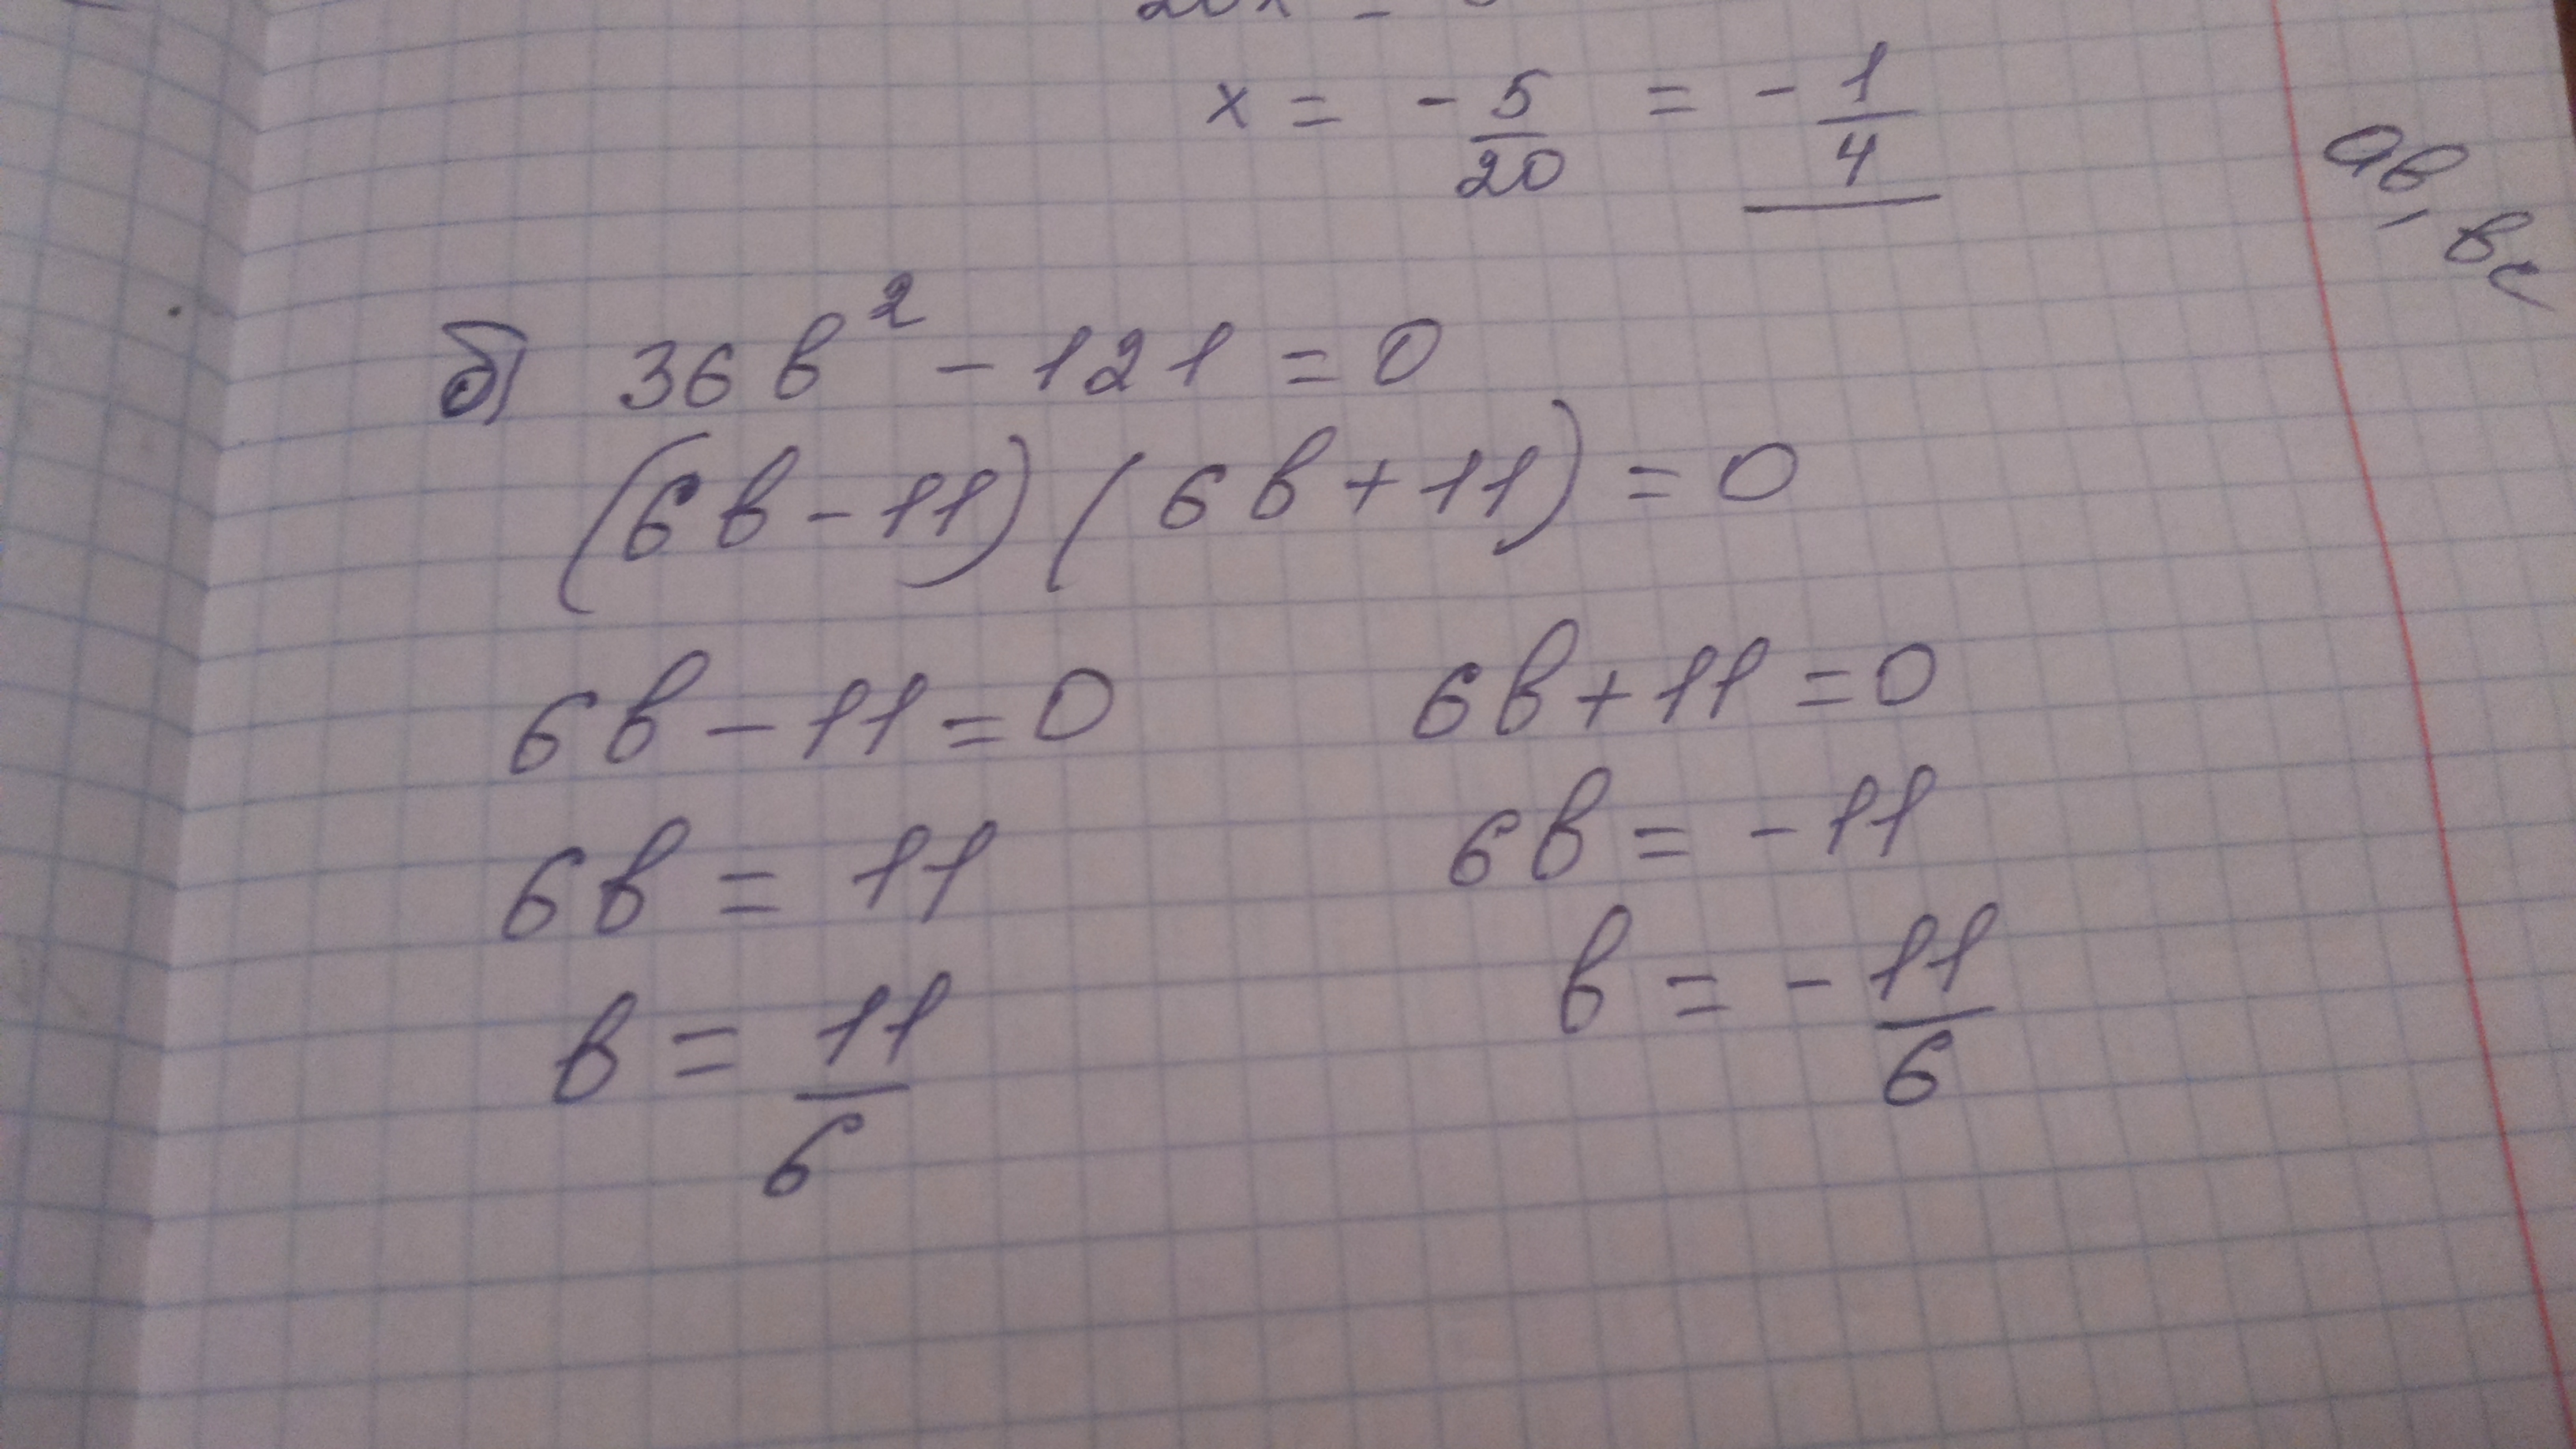 x = - 5/20 = - 1/4
ав, вс
б) 36в² - 121 = 0
(6в - 11) (6в + 11) = 0
6в - 11 = 0 6в + 11 = 0
6в = 11 6в = - 11
в = 11/6 в = - 11/6